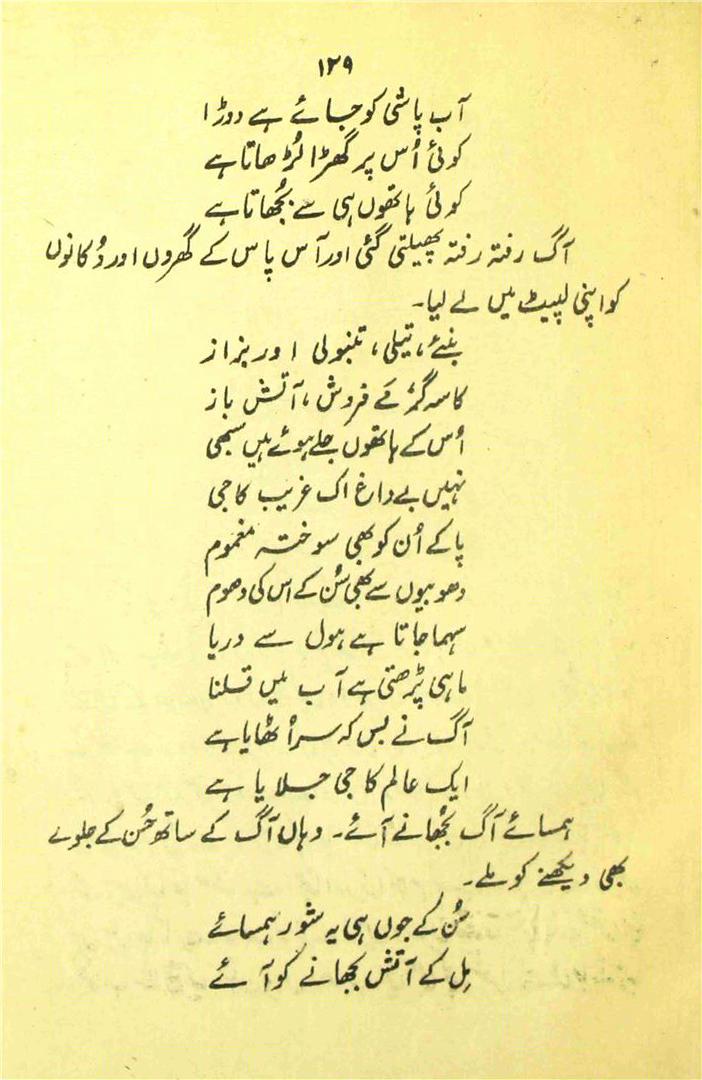 ۱۲۹
آب پاشی کو جائے ہے دوڑا
کوئی اُس پر گھڑا لُڑھاتا ہے
کوئی ہاتھوں ہی سے بُجھاتا ہے
آگ رفتہ رفتہ پھیلتی گئی اور آس پاس کے گھروں اور دُکانوں
کو اپنی لپیٹ میں لے لیا۔
بنئے، تیلی، تنبولی اور بزاز
کاسہ گر، مَے فروش، آتش باز
اُس کے ہاتھوں جلے ہوئے ہیں سبھی
نہیں بے داغ اک غریب کا جی
پا کے اُن کو بھی سوختہ مغموم
دھوبیوں سے بھی سُن کے اس کی دھوم
سہما جاتا ہے ہول سے دریا
ماہی پڑھتی ہے آب میں قسلنا
آگ نے بس کہ سر اُٹھایا ہے
ایک عالم کا جی جلایا ہے
ہمسائے آگ بُجھانے آئے۔ وہاں آگ کے ساتھ حُسن کے جلوے
بھی دیکھنے کو ملے۔
سُن کے جوں ہی یہ شور ہمسائے
مِل کے آتش بجھانے کو آئے